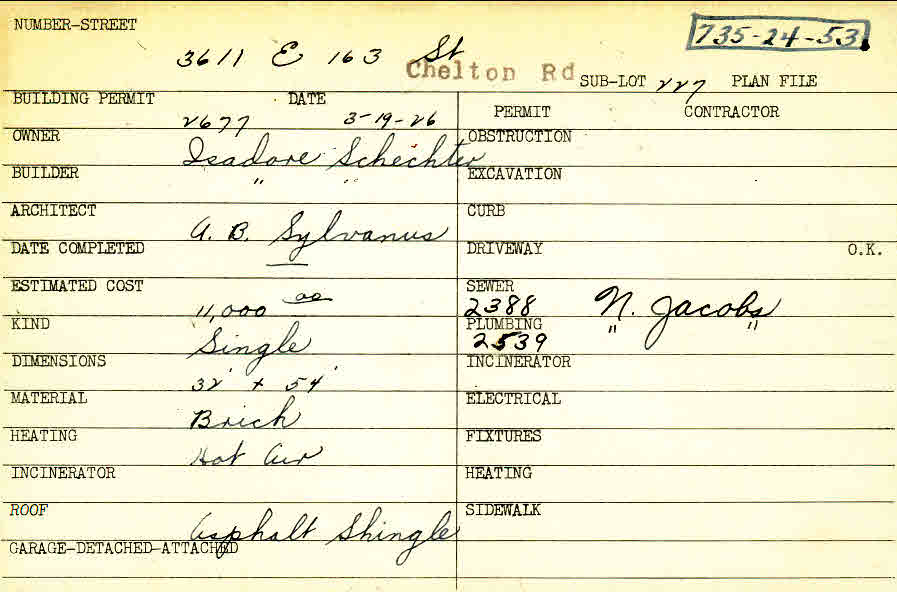 NUMBER-STREET 735-24-53
3611 E 163 St
Chelton Rd SUB-LOT 227 PLAN FILE
BUILDING PERMIT DATE PERMIT CONTRACTOR
2677 3-19-26
OWNER Isadore Schechter OBSTRUCTION
BUILDER " " EXCAVATION
ARCHITECT A. B. Sylvanus CURB
DATE COMPLETED DRIVEWAY O.K.
ESTIMATED COST 11,000 00 SEWER 2388 N. Jacobs
KIND Single PLUMBING 2539 " "
DIMENSIONS 32' x 54' INCINERATOR
MATERIAL Brick ELECTRICAL
HEATING Hot Air FIXTURES
INCINERATOR HEATING
ROOF Asphalt Shingle SIDEWALK
GARAGE-DETACHED-ATTACHED